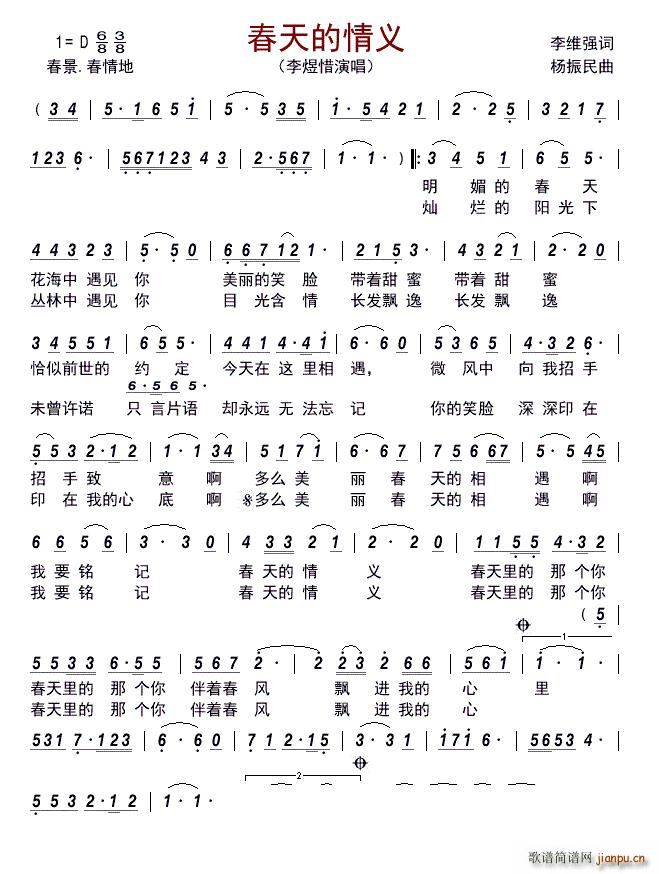 春天的情义
1= D 6/8 3/8
李维强词
春景.春情地
（李煜惜演唱）
杨振民曲
( 3 4 | 5 · 1 6 5 1 | 5 · 5 3 5 | 2 · 2 1 | 4 · 2 1 2 | 2 · 2 5 | 3 2 1 7 |
1 2 3 6 · | 5 6 7 1 2 3 4 3 | 2 · 5 6 7 | 1 · 1 · ) ‖: 3 4 5 1 | 6 5 5 · |
明 媚的 春 天
灿 烂的 阳光下
4 4 3 2 3 | 5 · 5 0 | 6 6 7 1 2 1 | 2 1 5 3 | 4 3 2 1 | 2 · 2 0 |
花海中 遇见 你 美丽的笑 脸 带着甜 蜜 带着 甜 蜜
丛林中 遇见 你 目 光含 情 长发飘 逸 长发 飘 逸
3 4 5 5 1 | 6 5 5 · | 2 4 4 1 4 · 4 1 | 6 · 6 0 | 5 3 6 5 | 4 · 3 2 6 · |
恰似前世的 约 定 今天在 这 里相 遇， 微 风中 向 我招 手
6 · 5 6 5 ·
未曾许诺 只 言片语 却永远 无 法忘 记 你的笑脸 深 深印 在
5 5 3 2 · 1 2 | 1 · 1 3 4 | 5 1 7 1 | 6 · 6 7 | 7 5 6 6 7 | 5 · 5 5 |
招 手 致 意 啊 多么 美 丽 春 天的 相 遇 啊
印 在 我的心 底 啊 𝄋多么 美 丽 春 天的 相 遇 啊
6 6 5 6 | 3 · 3 0 | 4 3 3 2 1 | 2 · 2 0 | 1 1 5 5 | 4 · 3 2 |
我 要 铭 记 春 天的 情 义 春天里的 那 个你
我 要 铭 记 春 天的 情 义 春天里的 那 个你
( 5 ·
1
5 5 3 3 · 3 2 | 5 5 6 7 | 2 · 2 · | 2 2 3 2 6 6 | 5 6 1 | 1 · 1 · |
春天里的 那 个你 伴着春 风 飘 进 我的 心 里
春天里的 那 个你 伴着春 风 飘 进 我的 心
5 3 1 7 · 1 2 3 | 6 · 6 0 | 7 2 · 1 5 | 3 · 3 · | 1 7 1 6 · | 5 6 5 3 4 · |
2
5 5 3 2 · 1 2 | 1 · 1 · |
歌谱简谱网 jianpu.cn